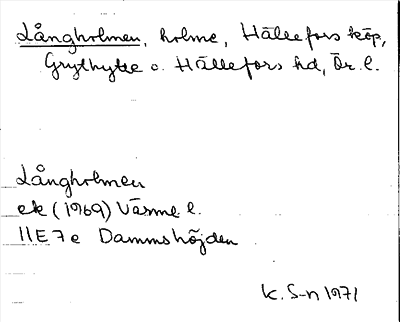 Långholmen, holme, Hällefors köp,
Grythytte o. Hällefors hd, Ör. l.
Långholmen
ek (1969) Värml. l.
11E7e Dammshöjden
K. S-n 1971